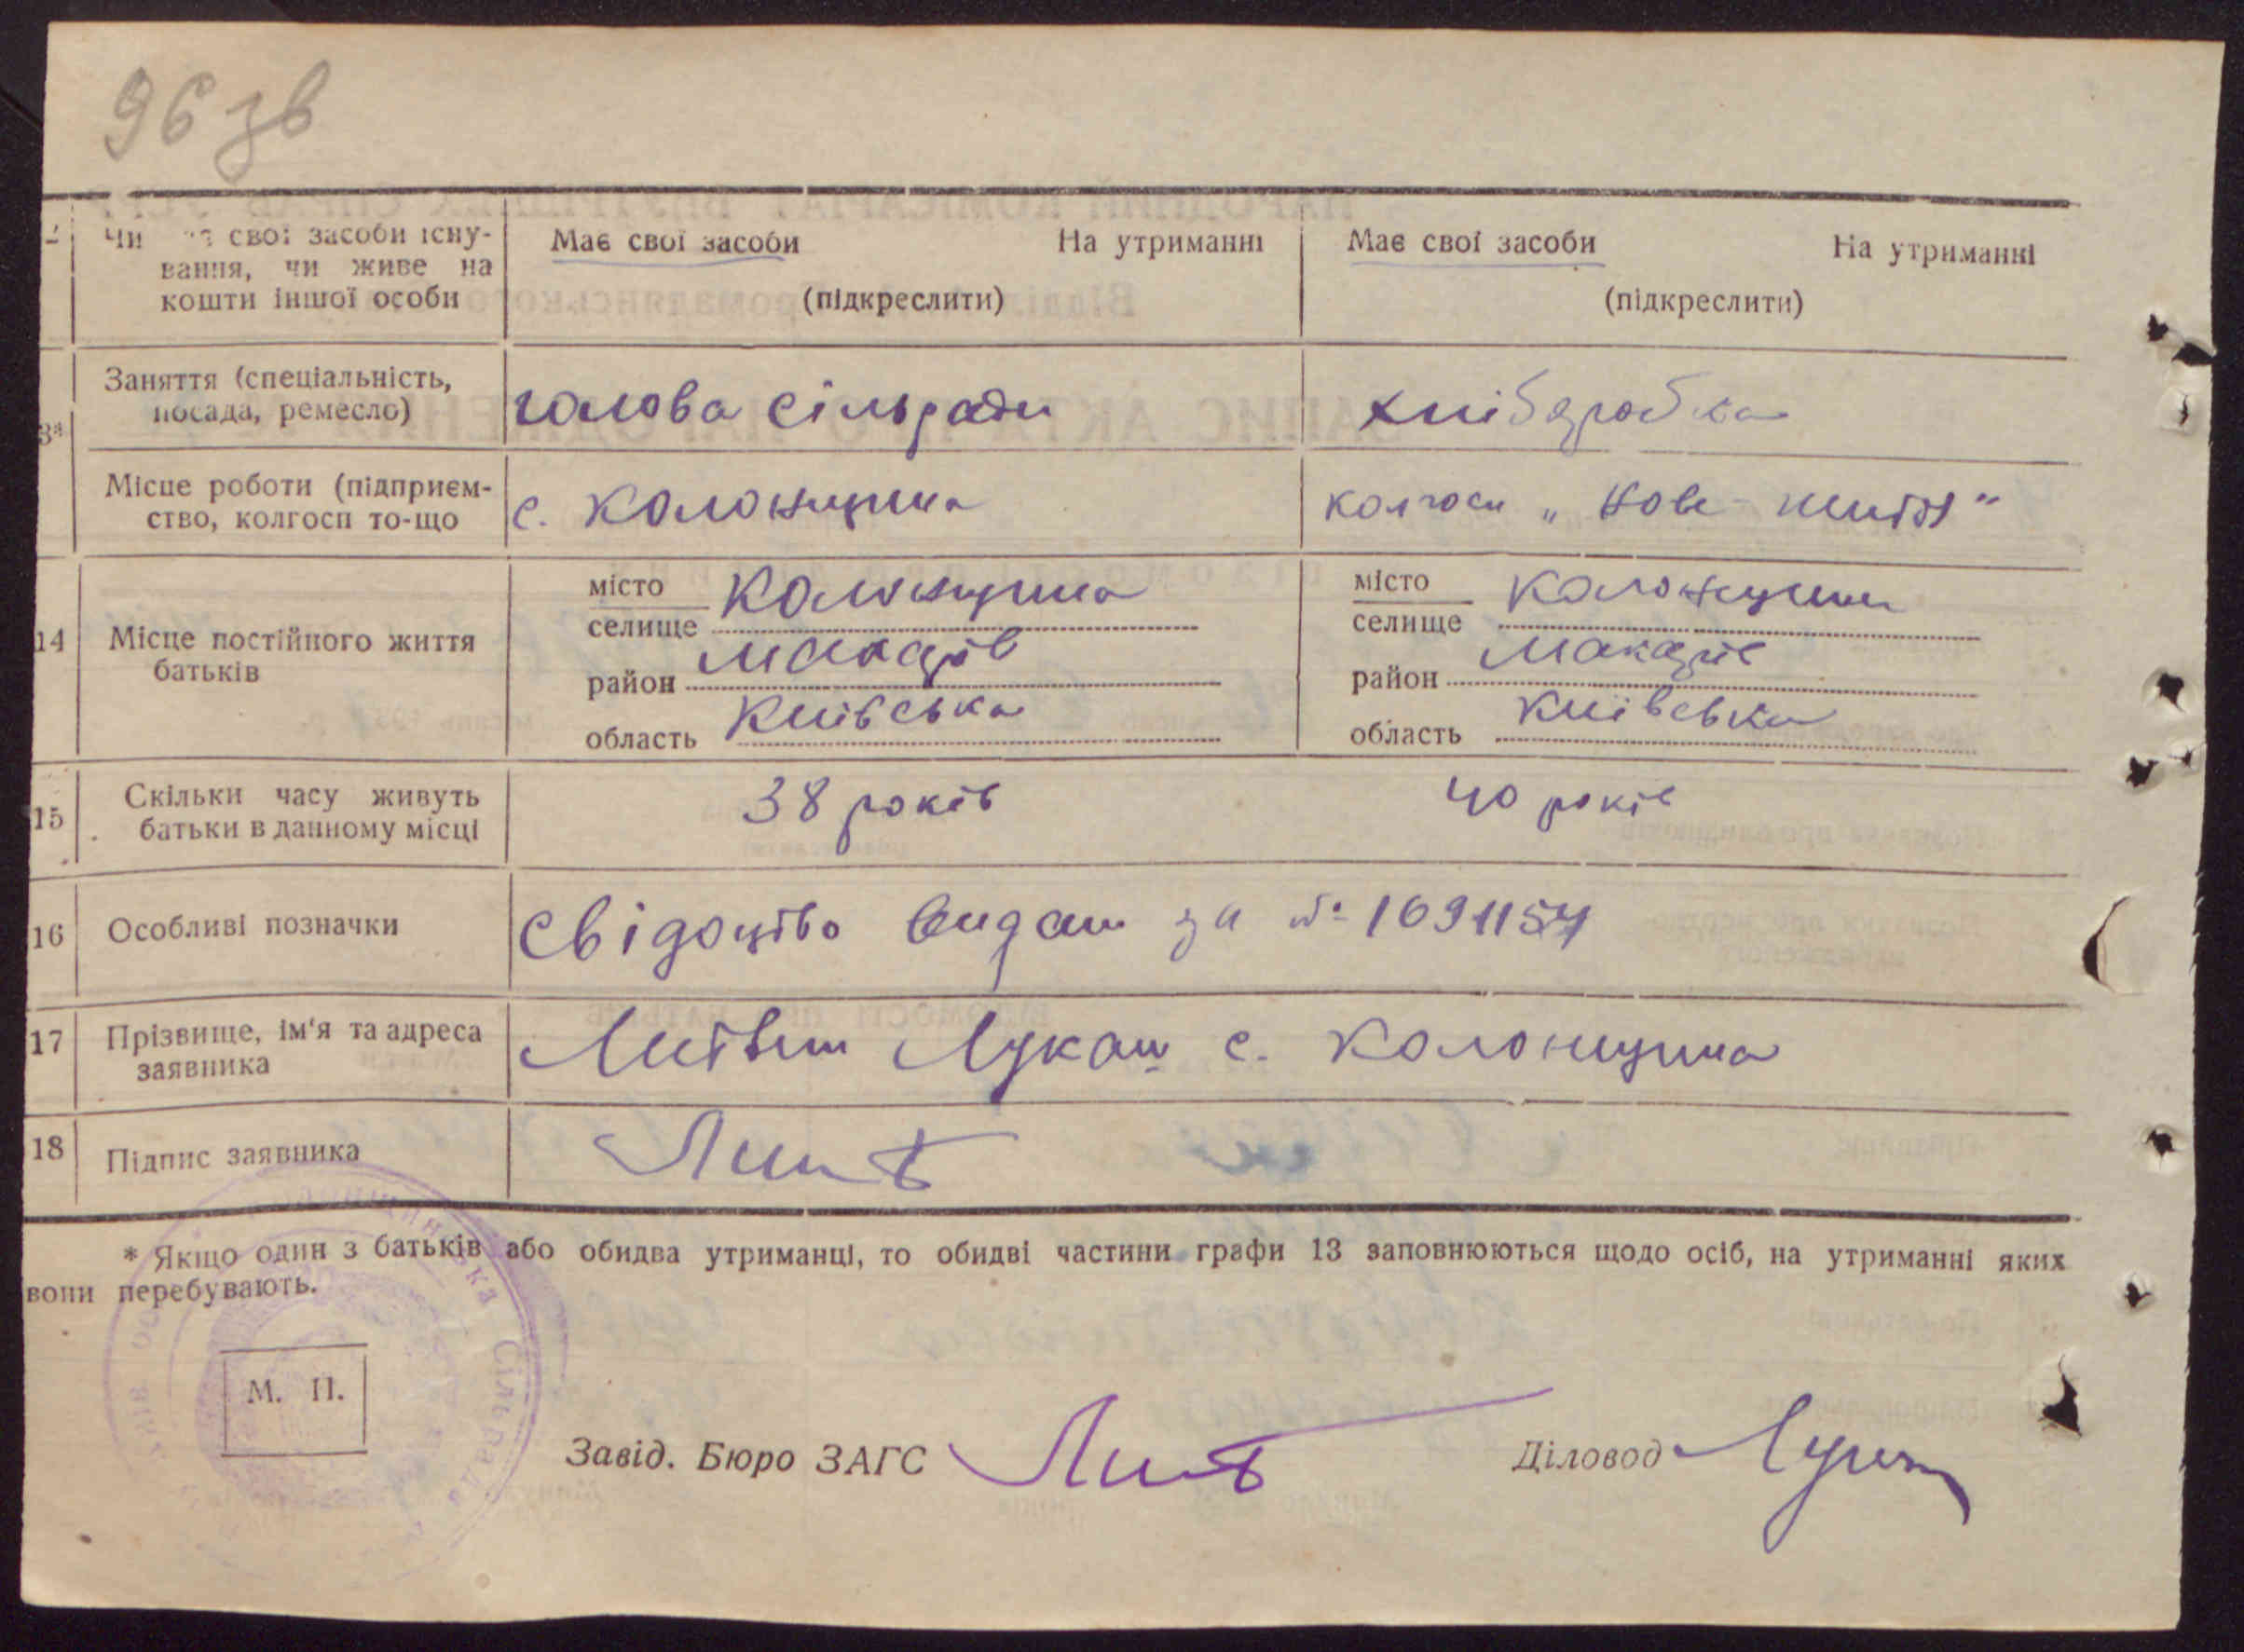 96 зв
Чи має свої засоби існу-
вання, чи живе на
кошти іншої особи
Має свої засоби На утриманні
(підкреслити)
Має свої засоби На утриманні
(підкреслити)
Заняття (спеціальність,
посада, ремесло)
голова сільради
хлібаробка
Місце роботи (підприєм-
ство, колгосп то-що
с. Колонщина
колгосп „Нове життя"
14
Місце постійного життя
батьків
місто
селище Колонщина
район Макарів
область Київська
місто
селище Колонщина
район Макарів
область Київська
15
Скільки часу живуть
батьки в данному місці
38 років
40 років
16
Особливі позначки
Свідоцтво видан за № 1691157
17
Прізвище, ім'я та адреса
заявника
Литвин Лукаш с. Колонщина
18
Підпис заявника
* Якщо один з батьків або обидва утриманці, то обидві частини графи 13 заповнюються щодо осіб, на утриманні яких
вони перебувають.
Сільрада
М. П.
Завід. Бюро ЗАГС
Діловод